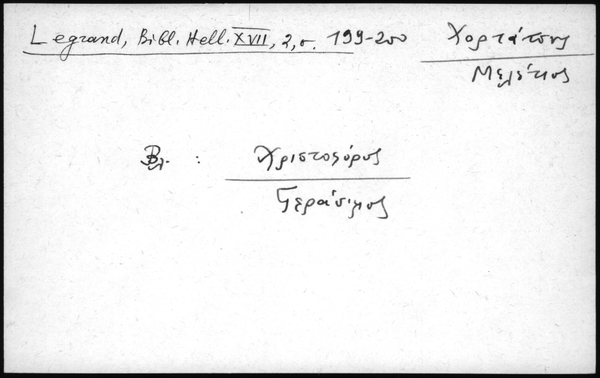 Legrand, Bibl. Hell. XVII, 2, σ. 199-200
Χορτάτσης
Μελέτιος
Βλ. : Χριστοφόρος
Γεράσιμος